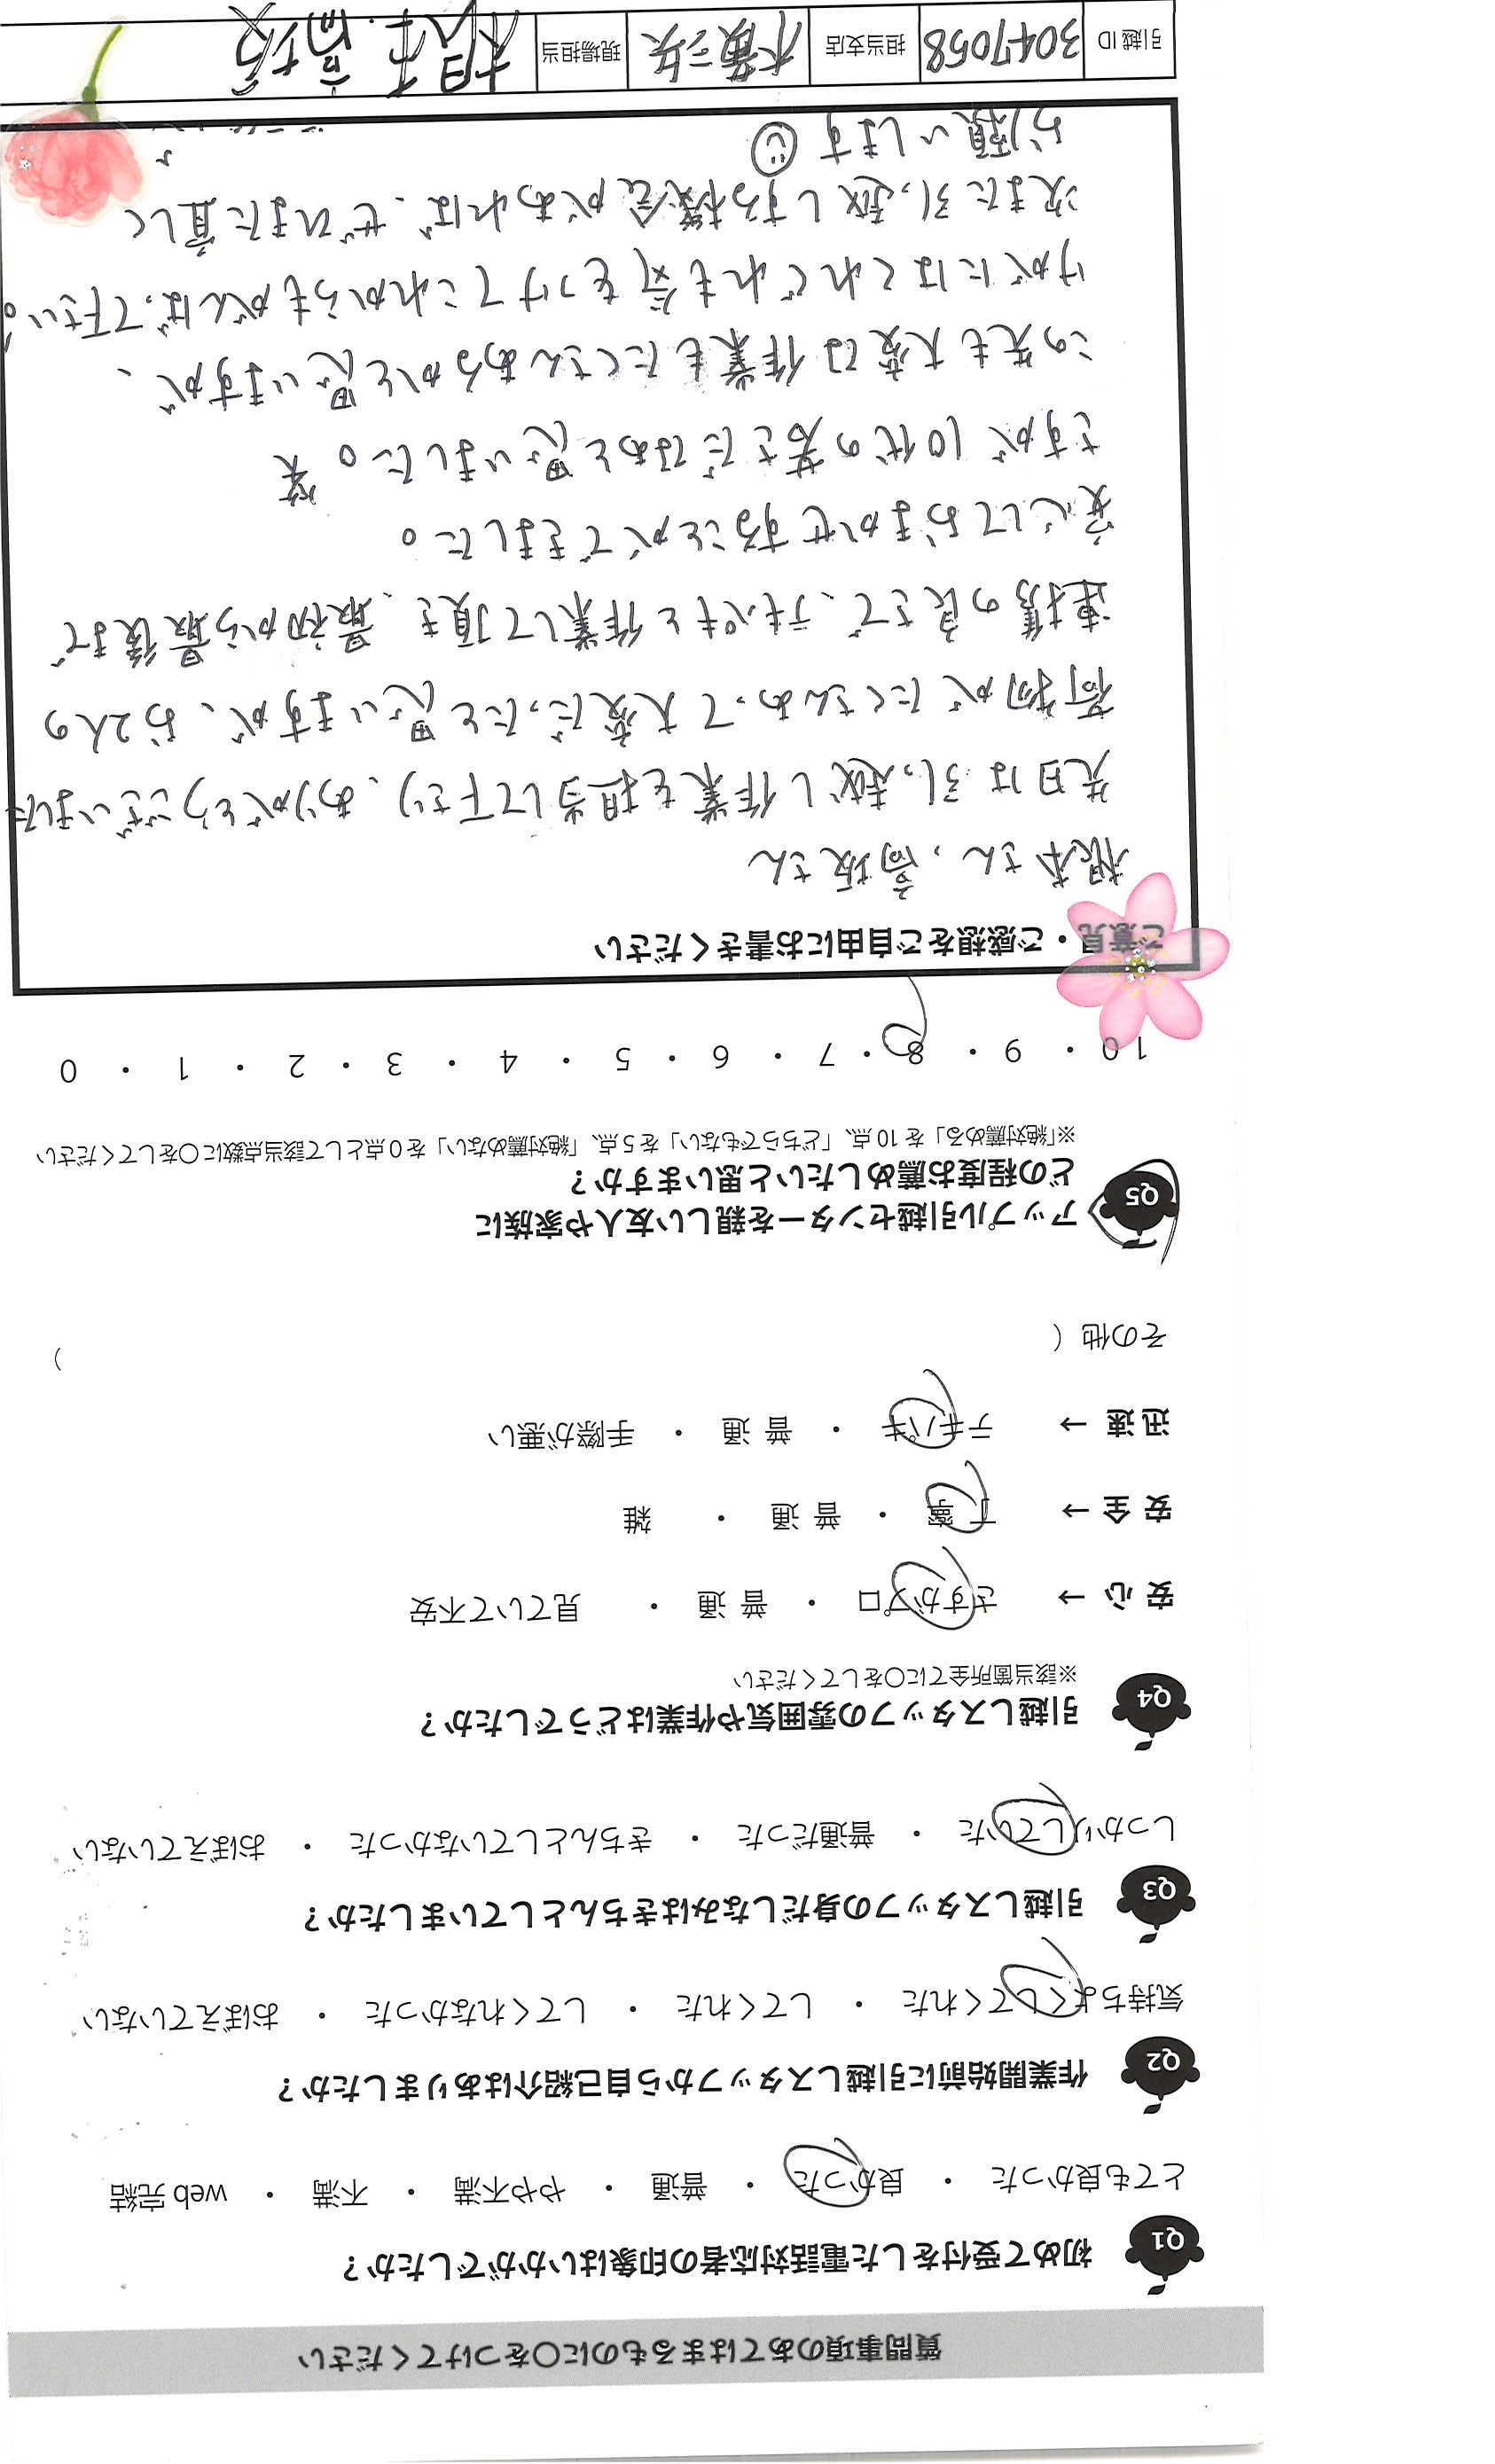 質問事項のあてはまるものに〇をつけてください
Q1 初めて受付をした電話対応者の印象はいかがでしたか？
とても良かった ・ 良かった ・ 普通 ・ やや不満 ・ 不満 ・ web 完結
Q2 作業開始前に引越しスタッフから自己紹介はありましたか？
気持ちよくしてくれた ・ してくれた ・ してくれなかった ・ おぼえていない
Q3 引越しスタッフの身だしなみはきちんとしていましたか？
しっかりしていた ・ 普通だった ・ きちんとしていなかった ・ おぼえていない
Q4 引越しスタッフの雰囲気や作業はどうでしたか？
※該当箇所全てに〇をしてください
安心 → さすがプロ ・ 普通 ・ 見ていて不安
安全 → 丁寧 ・ 普通 ・ 雑
迅速 → テキパキ ・ 普通 ・ 手際が悪い
その他（ ）
Q5 アップル引越センターを親しい友人や家族に
どの程度お薦めしたいと思いますか？
※「絶対薦める」を 10 点、「どちらでもない」を 5 点、「絶対薦めない」を 0 点として該当点数に〇をしてください
10 ・ 9 ・ 8 ・ 7 ・ 6 ・ 5 ・ 4 ・ 3 ・ 2 ・ 1 ・ 0
ご意見・ご感想をご自由にお書きください
根本さん，高坂さん
先日は引っ越し作業を担当して下さり、ありがとうございました
荷物がたくさんあって大変だったと思いますが、お2人の
連携の良さで、テキパキと作業して頂き、最初から最後まで
安心しておまかせすることができました。
さすが10代の若さだなぁと思いました。笑
この先も大変な作業もたくさんあるかと思いますが、
けがにはくれぐれも気をつけてこれからもがんばって下さい。
次また引っ越しする機会があれば、ぜひまた宜しく
お願いします
引越ID 3047058 担当支店 担当 現場担当 根本 高坂